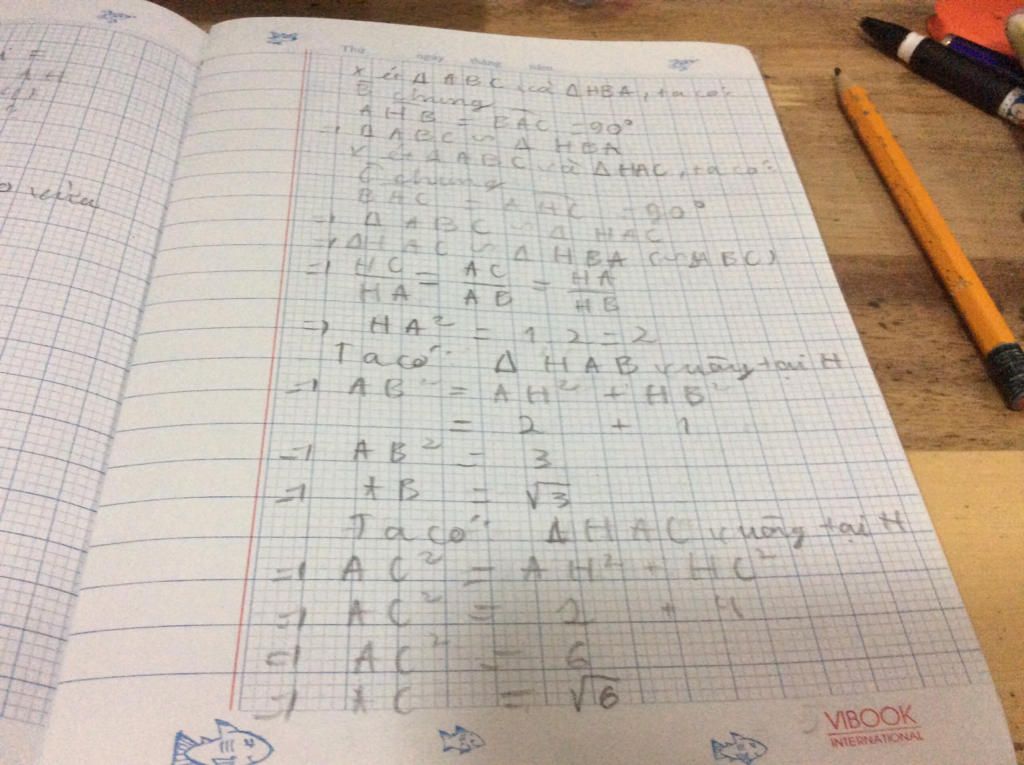 Thứ ngày tháng năm
Xét Δ ABC và ΔHBA, ta có:
B chung
AHB = BAC = 90°
=> Δ ABC ∽ Δ HBA
Xét Δ ABC và Δ HAC, ta có:
C chung
BAC = AHC = 90°
=> Δ ABC ∽ Δ HAC
=> Δ HAC ∽ Δ HBA (∽ ABC)
=> HC/HA = AC/AB = HA/HB
=> HA² = 1.2 = 2
Ta có: Δ HAB vuông tại H
=> AB² = AH² + HB²
= 2 + 1
=> AB² = 3
=> AB = √3
Ta có: Δ HAC vuông tại H
=> AC² = AH² + HC²
=> AC² = 2 + 4
=> AC² = 6
=> AC = √6
VIBOOK
INTERNATIONAL